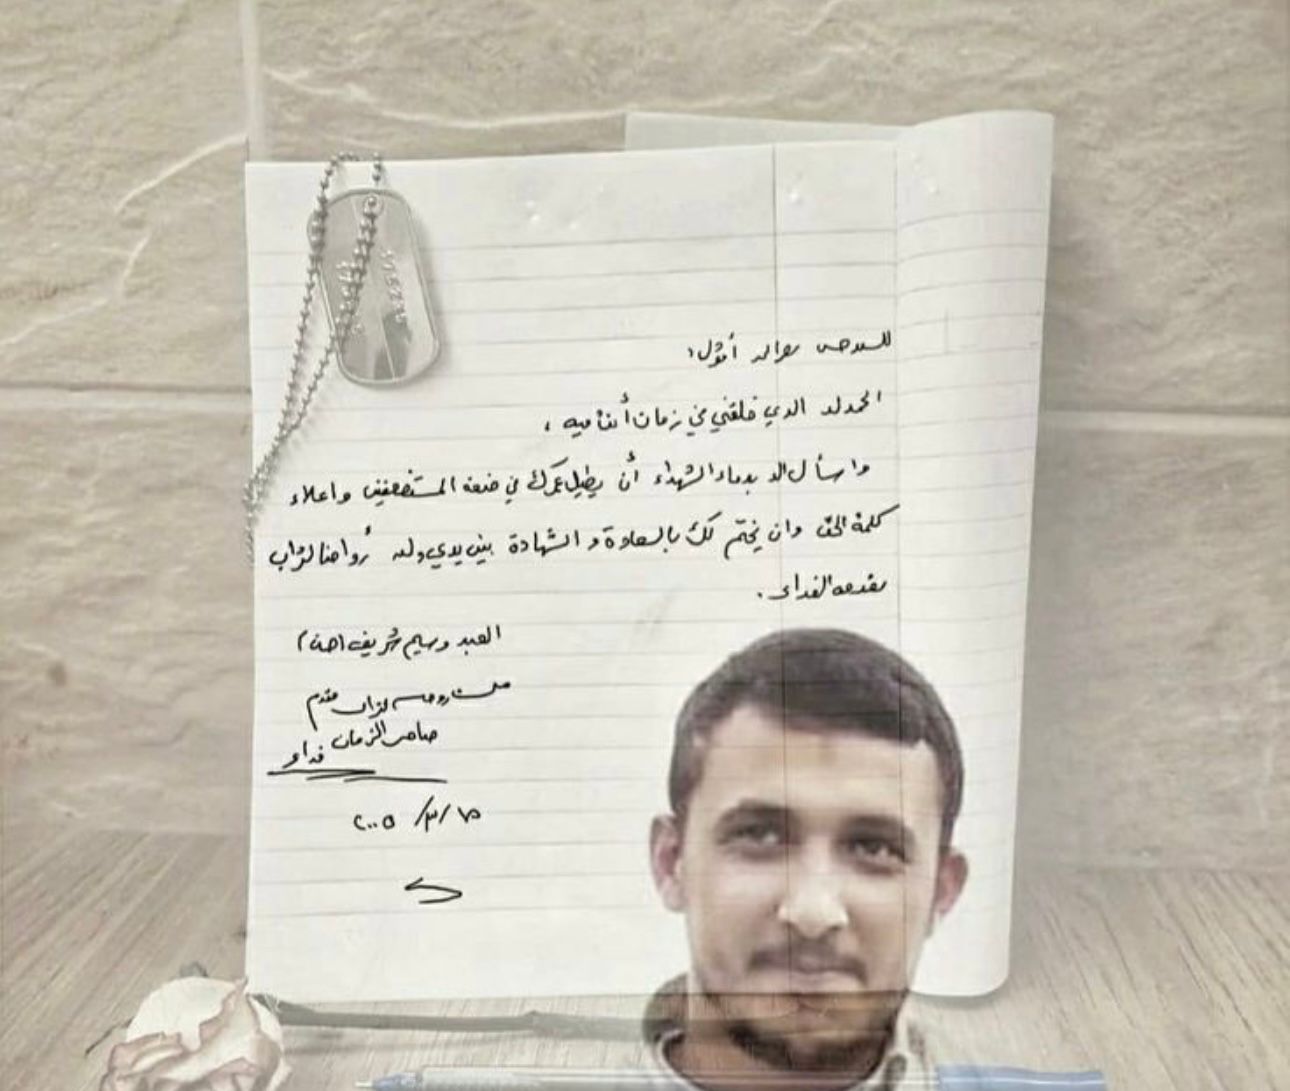 أقول:
الحمد لله الذي خلقني في زمان أنت فيه ،
واسأل الله بدماء الشهداء أن يطيل عمرك في خدمة المستضعفين واعلاء
كلمة الحق وان يختم لك بالسعادة و الشهادة بين يدي ولد أرواحنا لتراب
مقدمه الفداء .
العبد وسيم شريف
مقدم
صاحب الزمان فداء
١٥/٣/٢٠٠٥